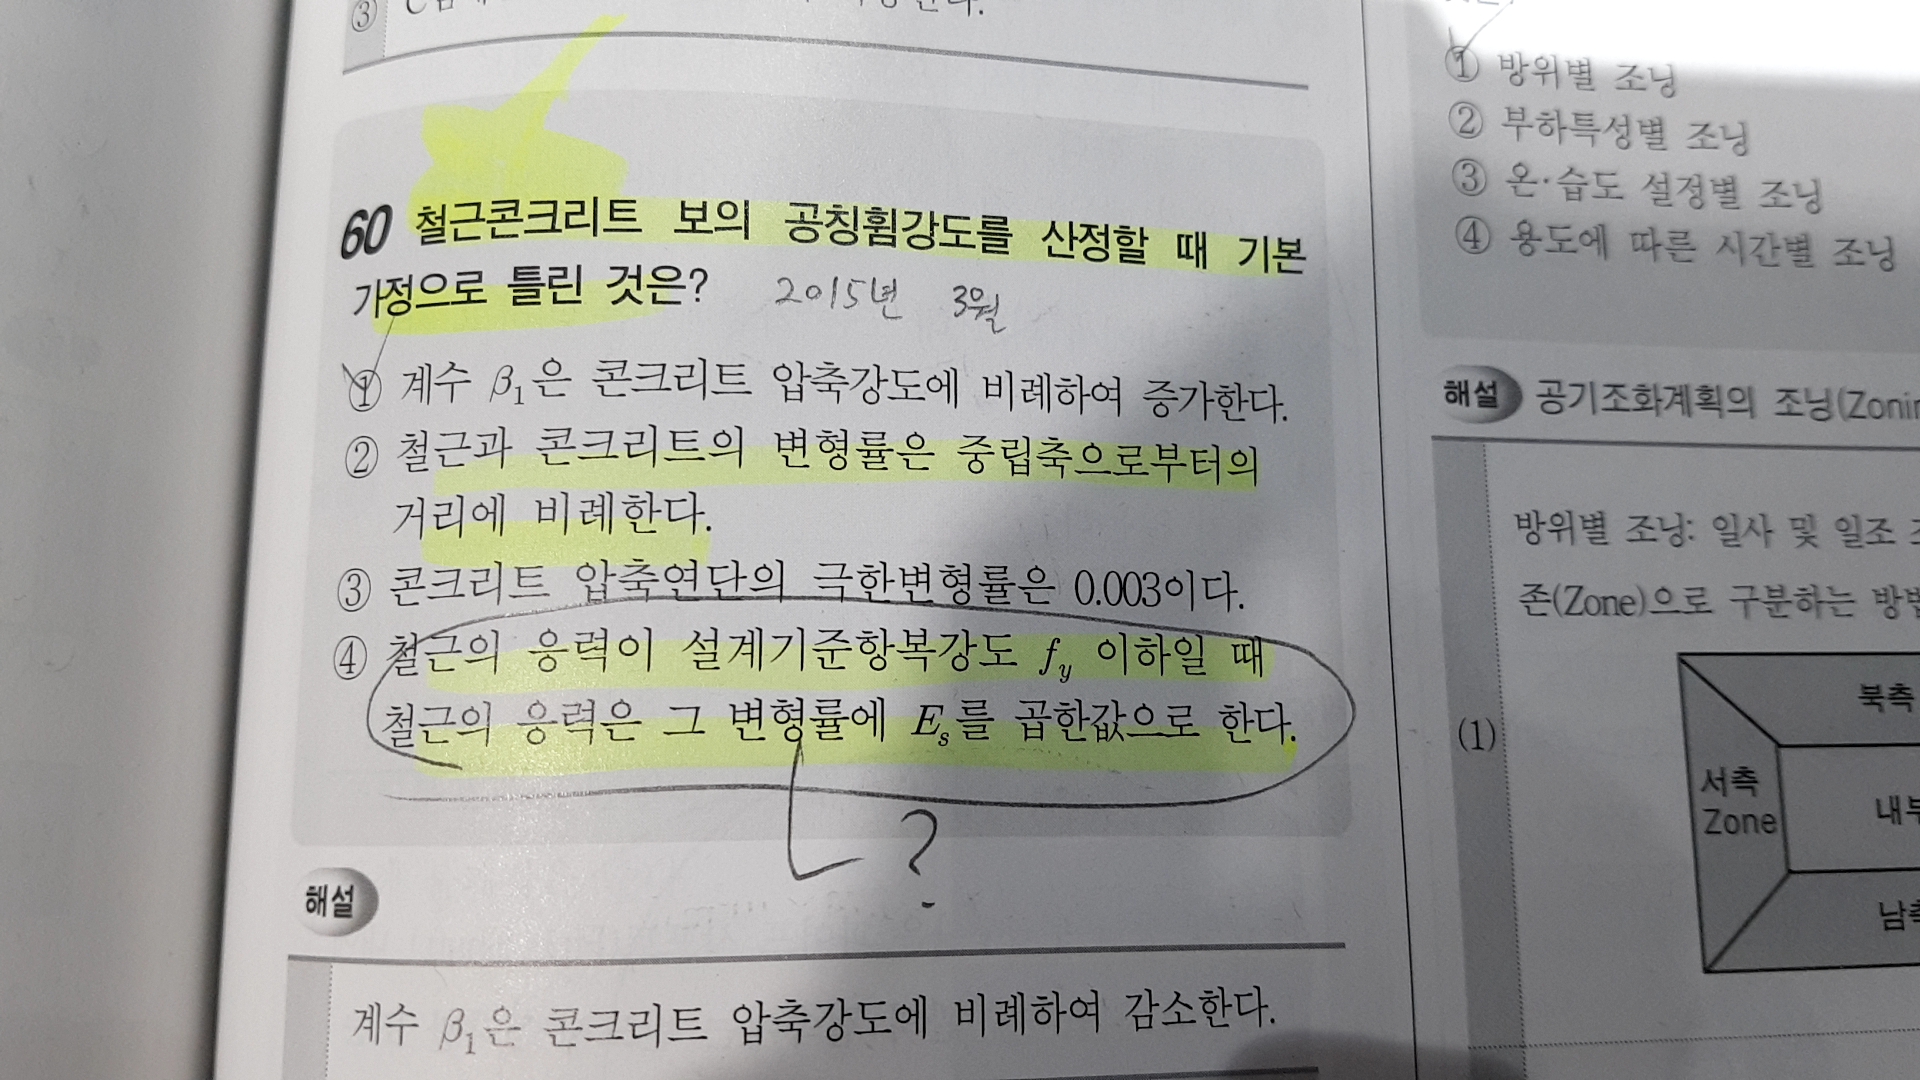 ③
60 철근콘크리트 보의 공칭휨강도를 산정할 때 기본
가정으로 틀린 것은? 2015년 3월
① 계수 β₁은 콘크리트 압축강도에 비례하여 증가한다.
② 철근과 콘크리트의 변형률은 중립축으로부터의
거리에 비례한다.
③ 콘크리트 압축연단의 극한변형률은 0.003이다.
④ 철근의 응력이 설계기준항복강도 fy 이하일 때
철근의 응력은 그 변형률에 Es를 곱한값으로 한다.
?
해설
계수 β₁은 콘크리트 압축강도에 비례하여 감소한다.
① 방위별 조닝
② 부하특성별 조닝
③ 온·습도 설정별 조닝
④ 용도에 따른 시간별 조닝
해설 공기조화계획의 조닝(Zonin
방위별 조닝: 일사 및 일조
존(Zone)으로 구분하는 방법
(1)
북측
서측
Zone
내부
남측